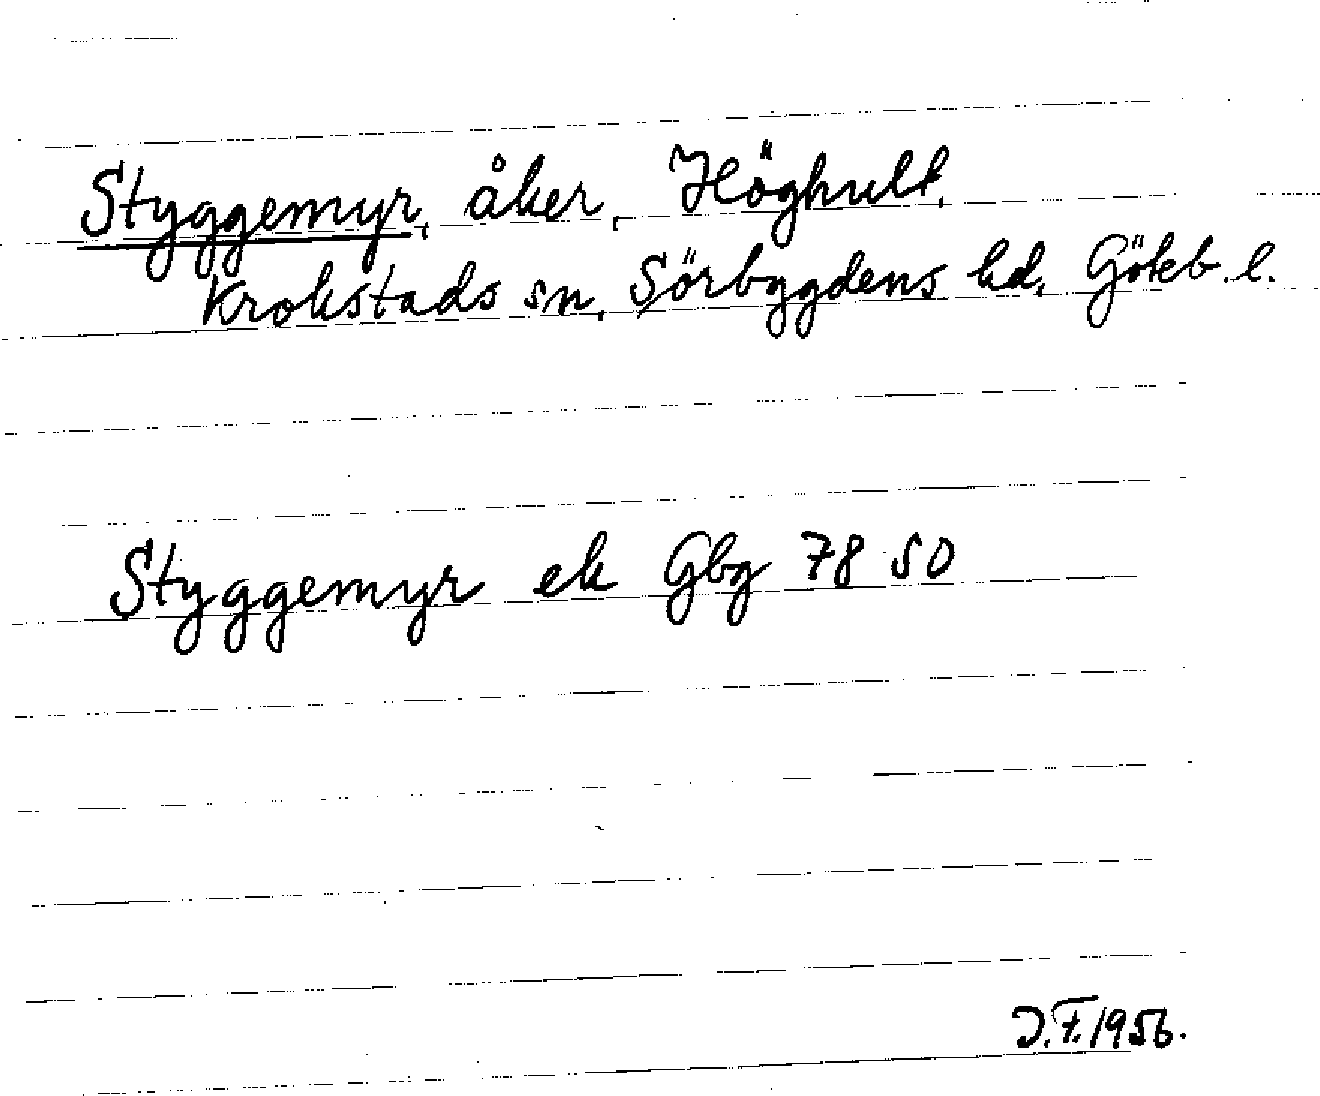 Styggemyr, åker, Höghult,
Krokstads sn, Sörbygdens hd, Gökb. l.
Styggemyr ek Gbg 78 50
J.F. 1956.